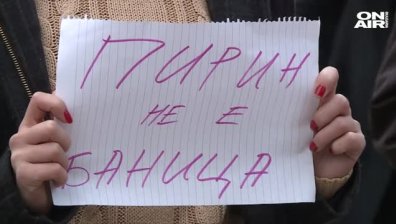 ON
AIR
ПИРИН
НЕ Е
БАНИЦА